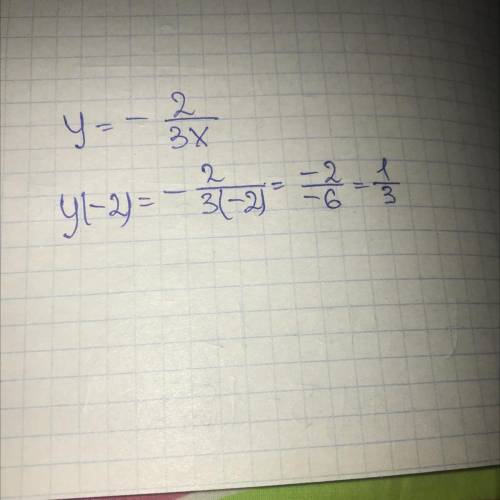 y = - 2/3x
y(-2) = - 2/3(-2) = -2/-6 = 1/3